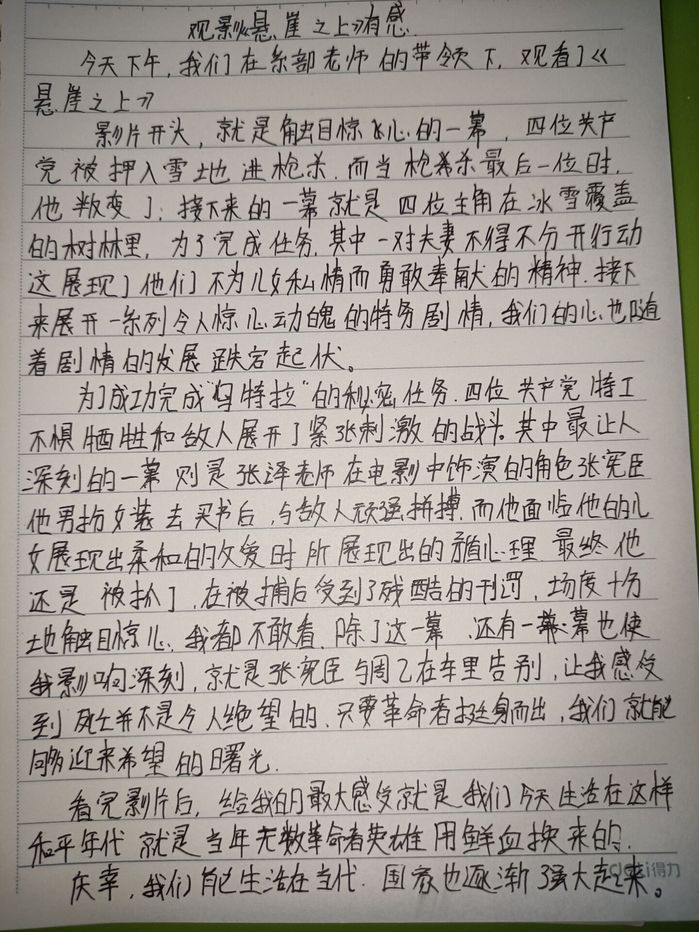 观影《悬崖之上》有感
今天下午,我们在系部老师的带领下,观看了《
悬崖之上》
影片开头,就是触目惊心的一幕,四位共产
党被押入雪地进枪杀.而当枪杀最后一位时,
他叛变了;接下来的一幕就是四位主角在冰雪覆盖
的树林里,为了完成任务.其中一对夫妻不得不分开行动
这展现了他们不为儿女私情而勇敢奉献的精神.接下
来展开一系列令人惊心动魄的特务剧情,我们的心也随
着剧情的发展跌宕起伏。
为了成功完成"乌特拉"的秘密任务.四位共产党特工
不惧牺牲和敌人展开了紧张刺激的战斗。其中最让人
深刻的一幕则是张译老师在电影中饰演的角色张宪臣
他男扮女装去买书后,与敌人顽强拼搏.而他面临他的儿
女展现出柔和的父爱时所展现出的矛盾心理 最终他
还是被抓了,在被捕后受到了残酷的刑罚,场度十分
地触目惊心,我都不敢看.除了这一幕,还有一幕也使
我影响深刻,就是张宪臣与周乙在车里告别,让我感受
到死亡并不是令人绝望的.只要革命者挺身而出,我们就能
够迎来希望的曙光.
看完影片后,给我的最大感受就是我们今天生活在这样
和平年代就是当年无数革命者英雄用鲜血换来的.
庆幸,我们能生活在当代.国家也逐渐强大起来。
deli得力